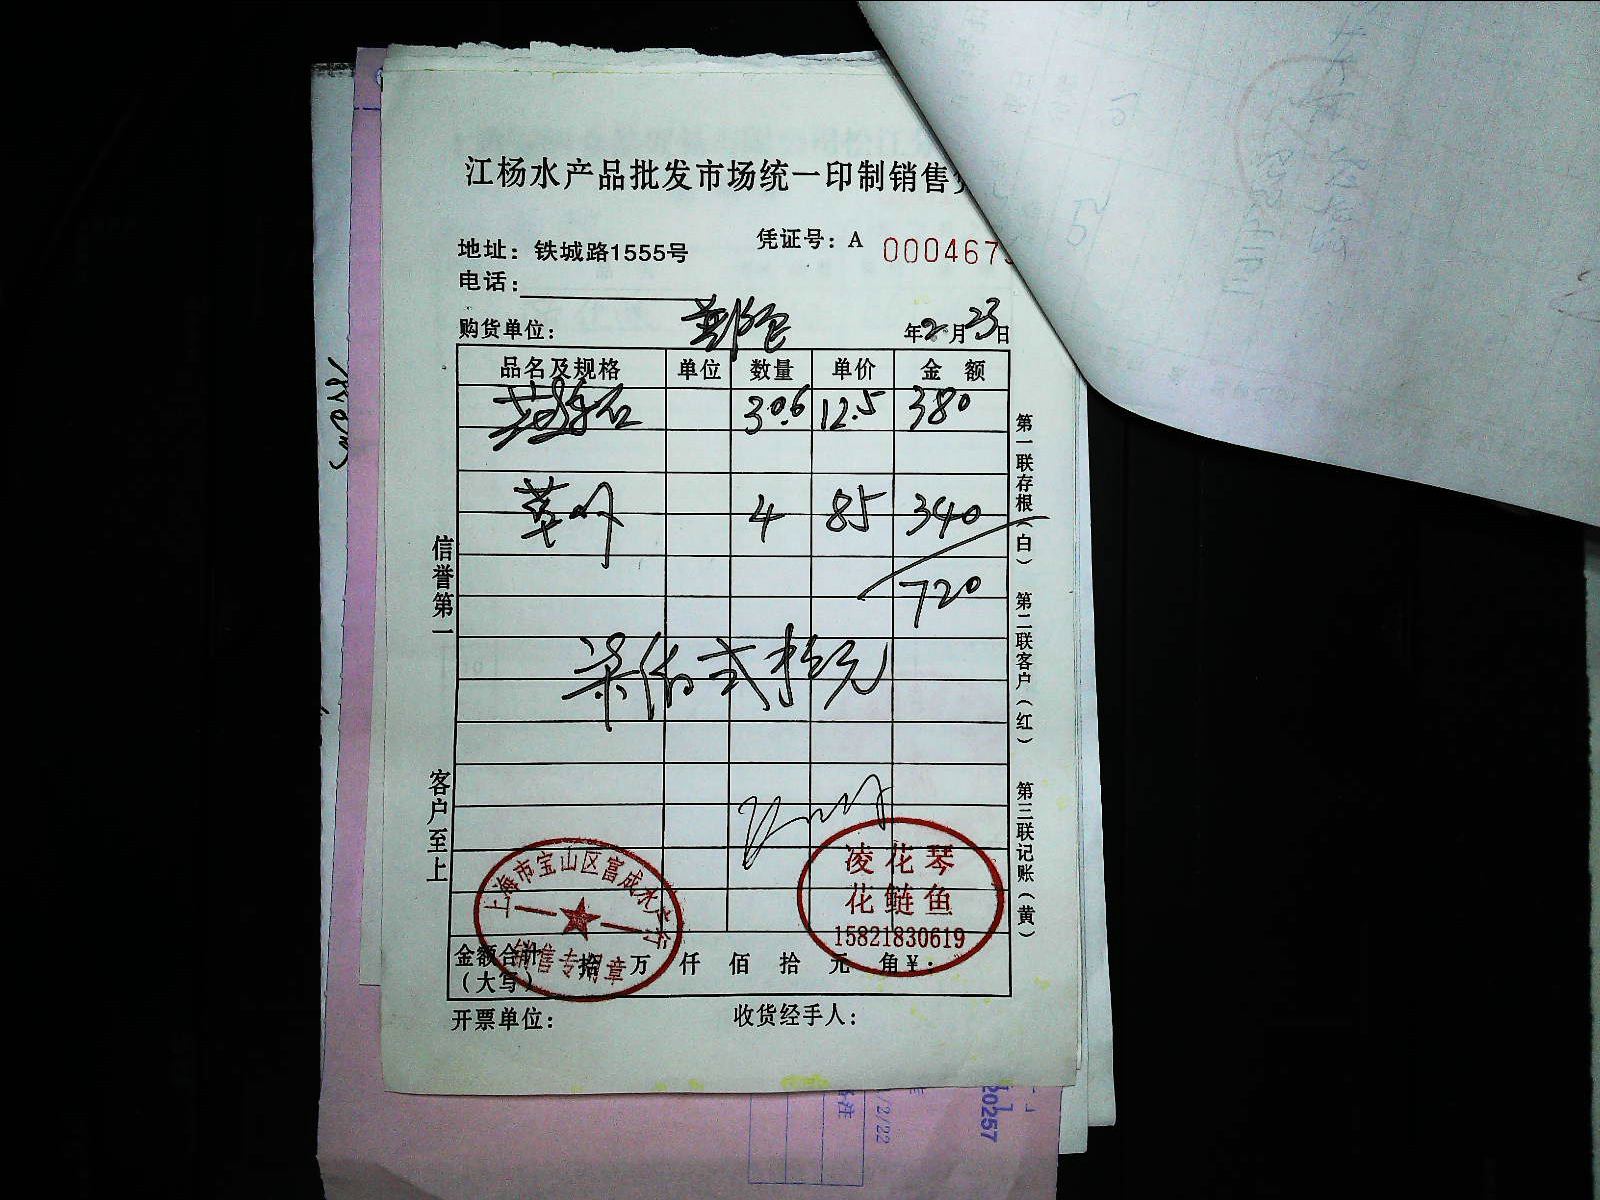 江杨水产品批发市场统一印制销售
地址：铁城路1555号
凭证号：A 000467
电话：
购货单位：
年2月23日
品名及规格 单位 数量 单价 金额
30.6 12.5 380
4 85 340
720
柒佰弍拾元
信誉第一
客户至上
第一联存根（白）
第二联客户（红）
第三联记账（黄）
上海市宝山区富成水产行
销售专用章
凌花琴
花鲢鱼
15821830619
金额合计 拾 万 仟 佰 拾 元 角￥：
（大写）
开票单位：
收货经手人：
20257